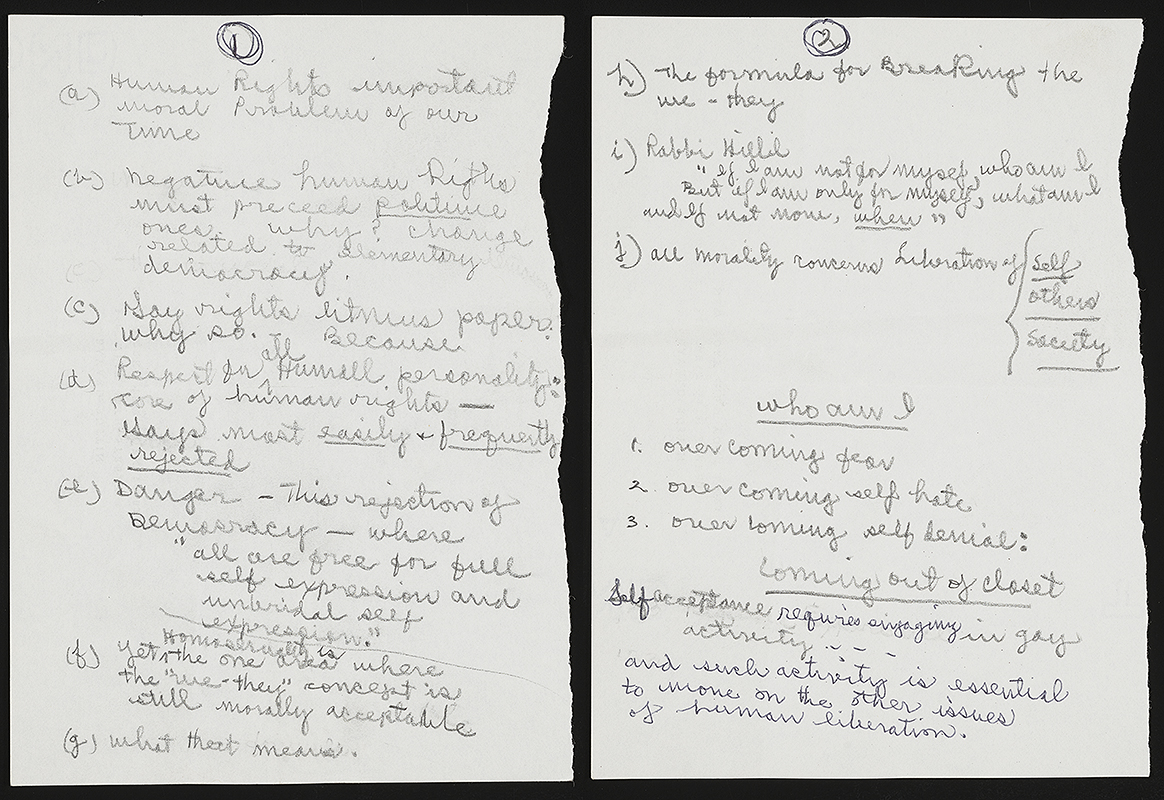 1
(a) Human Rights important
moral Problem of our
Time
(b) Negative human Rights
must preceed politive
ones. why? change
related to elementary
democracy.
(c) Gay rights litmus paper.
why so. Because
(d) Respect for all Human personality:
core of human rights —
Gays most easily + frequently
rejected
(e) Danger - This rejection of
Democracy — where
"all are free for full
self expression and
unbridal self
expression."
Homosexuality is
(f) yet the one area where
the "we-they" concept is
still morally acceptable
(g) what that means.
2
h) The formula for Breaking the
we - they
i) Rabbi Hillil
"If I am not for myself, who am I
But if I am only for myself, what am I
and If not now, when"
j) all morality concerns Liberation of { Self
others
Society
who am I
1. over coming fear
2. over coming self hate
3. over coming self denial:
Coming out of closet
Self acceptance requires engaging in gay
activity - - -
and such activity is essential
to move on the other issues
of human liberation.